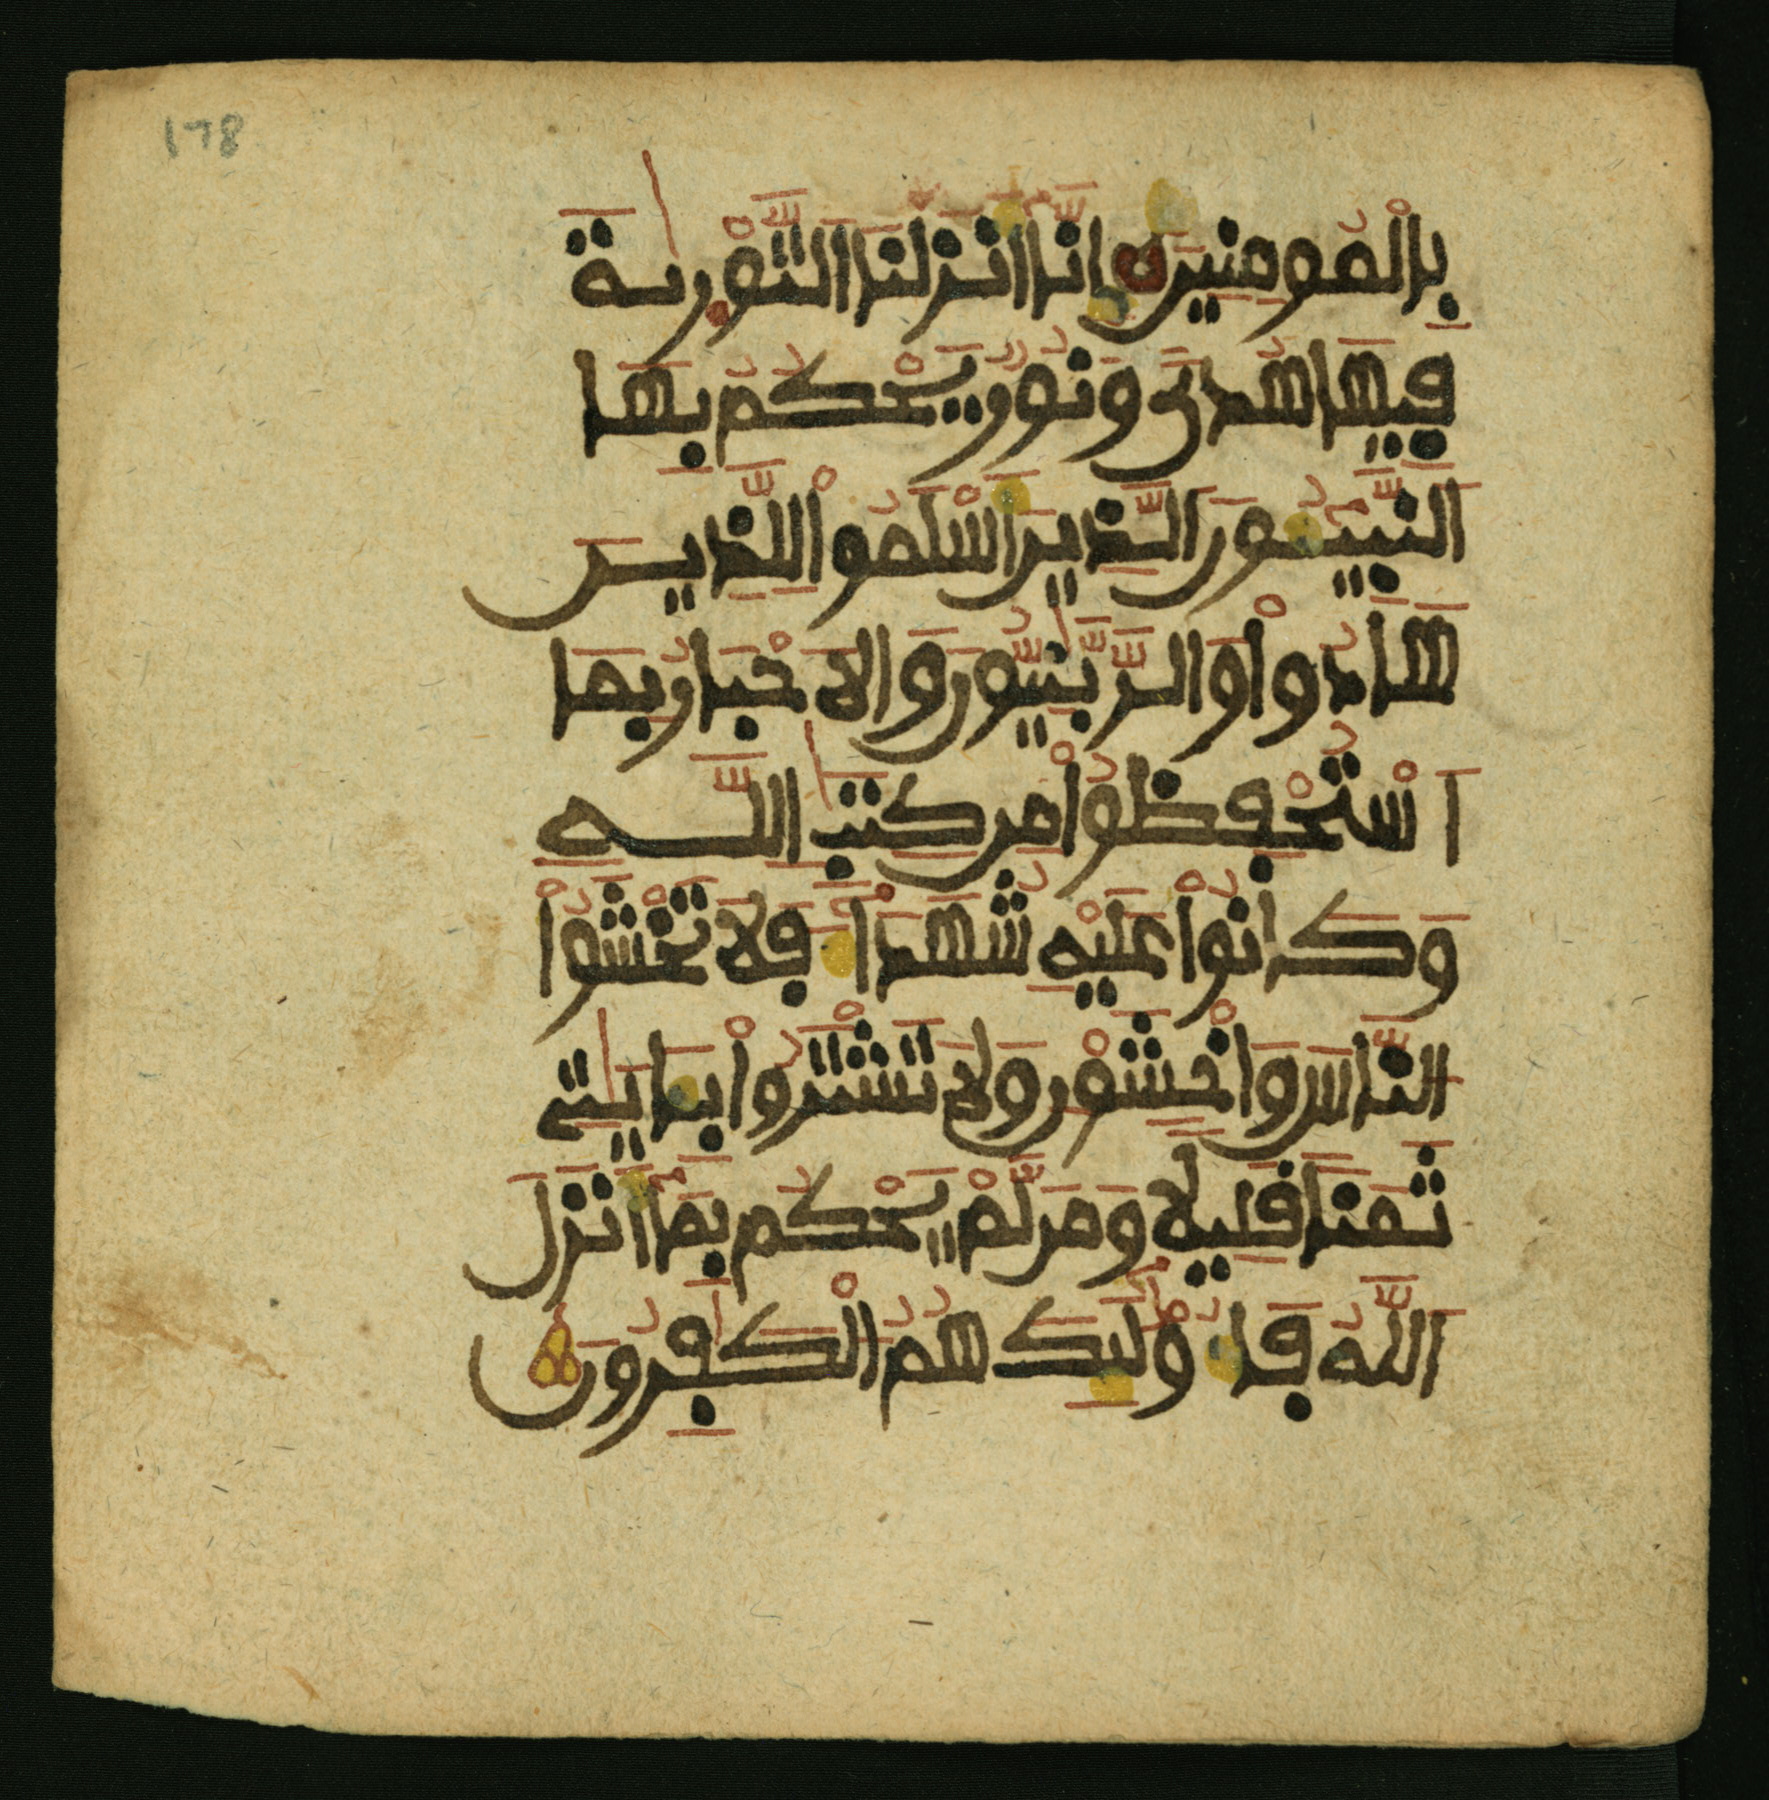 178
بِالْمُومِنِينَ إِنَّا أَنزَلْنَا التَّوْرٰىةَ
فِيهَا هُدًى وَنُورٌ يَحْكُمُ بِهَا
النَّبِيـُٔونَ الَّذِينَ أَسْلَمُواْ لِلَّذِينَ
هَادُواْ وَالرَّبَّٰنِيُّونَ وَالَاحْبَارُ بِمَا
اَسْتُحْفِظُواْ مِن كِتَٰبِ اللَّهِ
وَكَانُواْ عَلَيْهِ شُهَدَآءَ فَلَا تَخْشَوُاْ
النَّاسَ وَاخْشَوْنِ وَلَا تَشْتَرُواْ بِـَٔايَٰتِى
ثَمَنًا قَلِيلًا وَمَن لَّمْ يَحْكُم بِمَا أَنزَلَ
اللَّهُ فَأُوْلَٰٓئِكَ هُمُ الْكَٰفِرُونَ